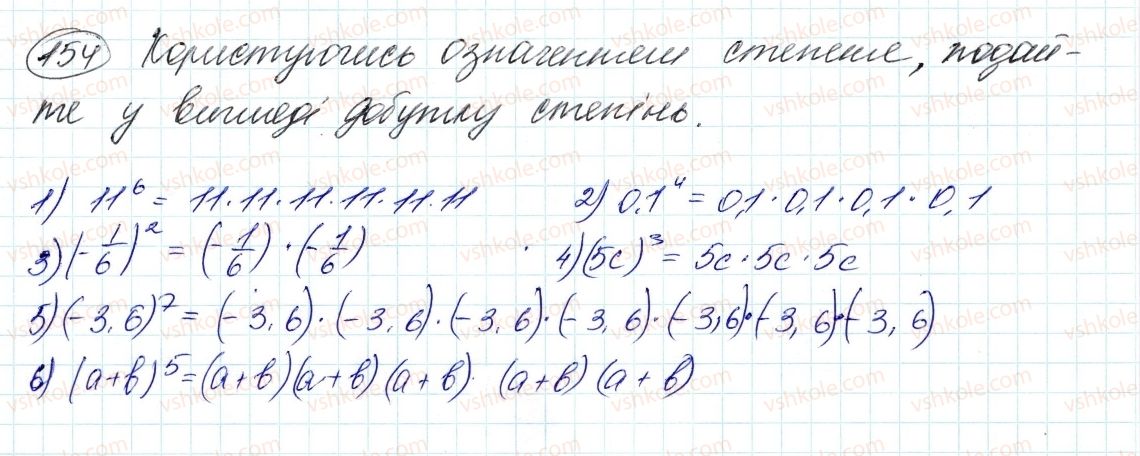 154 Користуючись означенням степеня, подай-
те у вигляді добутку степінь.
1) 11⁶ = 11·11·11·11·11·11 2) 0,1⁴ = 0,1·0,1·0,1·0,1
3) (-1/6)² = (-1/6)·(-1/6) 4) (5c)³ = 5c·5c·5c
5) (-3,6)⁷ = (-3,6)·(-3,6)·(-3,6)·(-3,6)·(-3,6)·(-3,6)·(-3,6)
6) (a+b)⁵ = (a+b)(a+b)(a+b)·(a+b)(a+b)